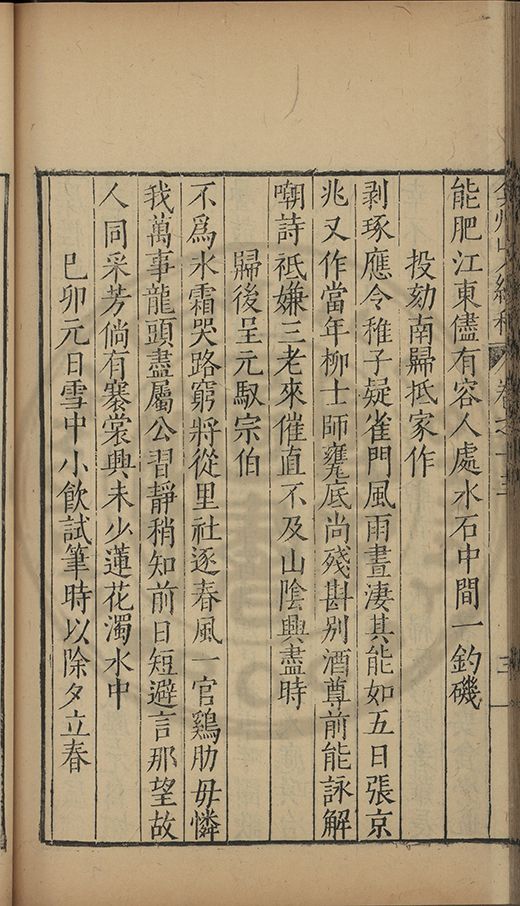 能肥江東儘有容人處水石中間一釣磯
投劾南歸抵家作
剥琢應令稚子疑雀門風雨晝凄其能如五日張京
兆又作當年柳士師甕底尚殘斟别酒尊前能詠解
嘲詩祇嫌三老來催直不及山陰興盡時
歸後呈元馭宗伯
不爲氷霜哭路窮將從里社逐春風一官鷄肋毋憐
我萬事龍頭盡屬公習靜稍知前日短避言那望故
人同采芳倘有褰裳興未少蓮花濁水中
巳卯元日雪中小飲試筆時以除夕立春